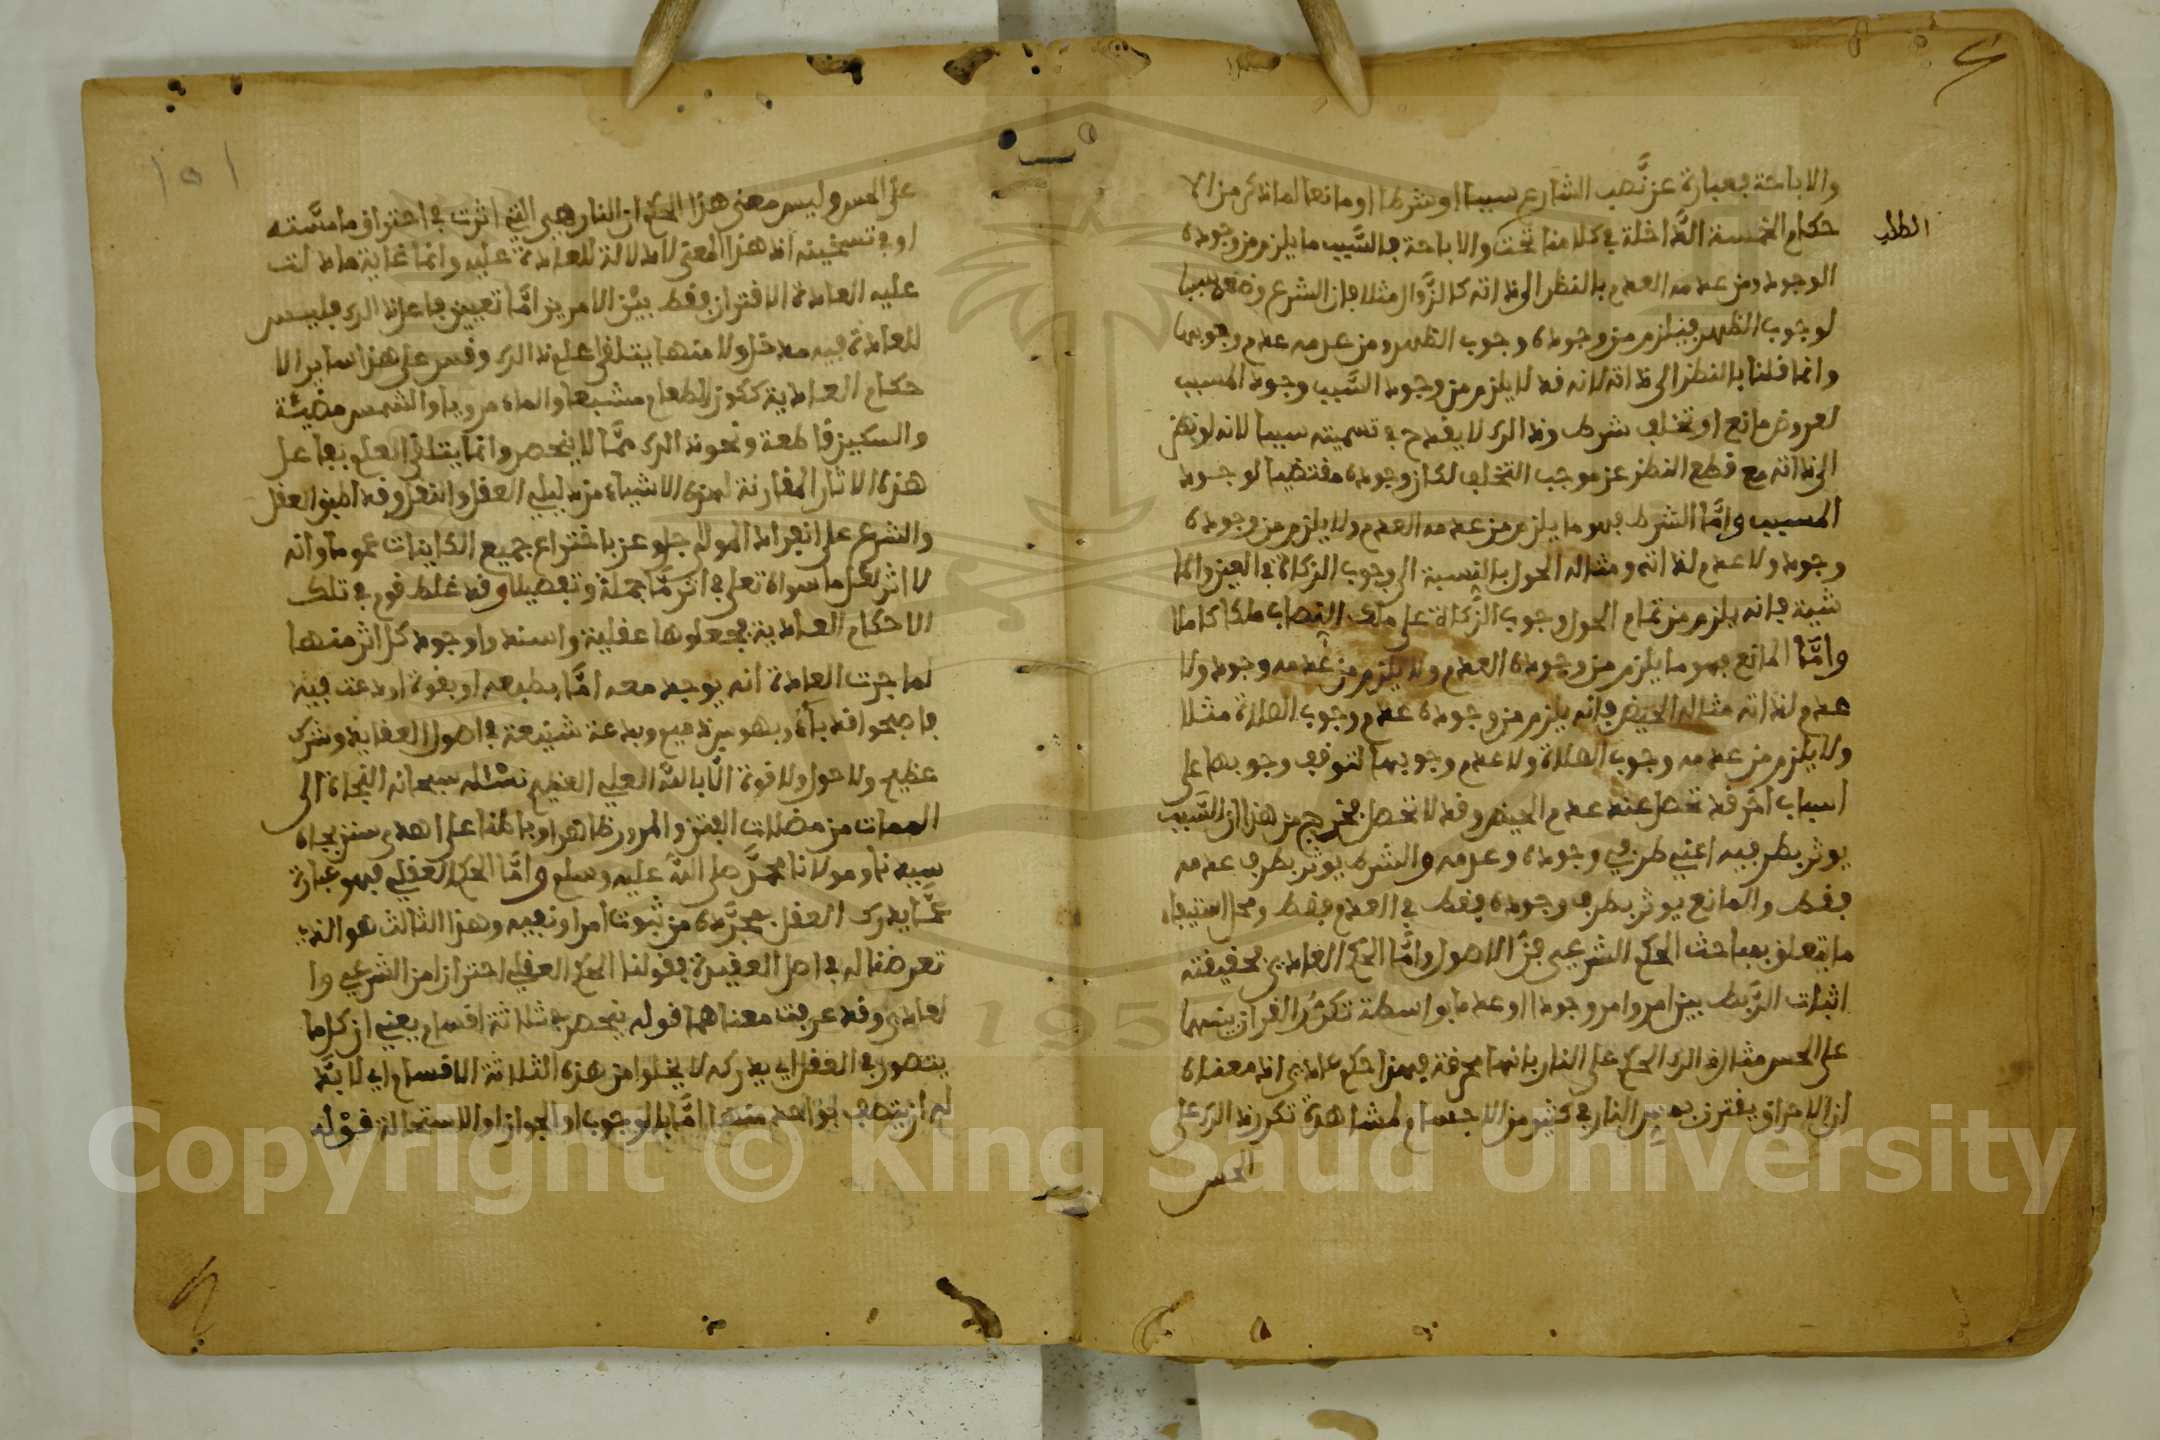 والاباحة فعبارة عن نَّصب الشارع سببا او شرطا او مانعا لما ذكر من الا
حكام الخمسة الدَّاخلة في كلامنا تحت والاباحة فالسَّبب ما يلزم من وجوده
الطلب
الوجود ومن عدمه العدم بالنظر الى ذاته كالزَّوال مثلا فان الشرع وضعه سببا
لوجوب الظهر فيلزم من وجوده وجوب الظهر ومن عدمه عدم وجوبها
وانما قلنا بالنظر الى ذاته لانه قد لا يلزم من وجود السَّبب وجود المسبب
لعروض مانع او تخلف شرط وذالك لا يقدح في تسميته سببا لانه لو نظر
الى ذاته مع قطع النظر عن موجب التخلف لكان وجوده مقتضيا لوجود
المسبب وامَّا الشرط فهو ما يلزم من عدمه العدم ولا يلزم من وجوده
وجود ولا عدم لذاته ومثاله الحول بالنسبة الى وجوب الزكاة في العين والما
شية فانه يلزم من تمام الحول وجوب الزَّكاة على ملك النصاب ملكا كاملا
وامَّا المانع فهو ما يلزم من وجوده العدم ولا يلزم من عدمه وجود ولا
عدم لذاته مثاله الحيض فانه يلزم من وجوده عدم وجوب الصلاة مثلا
ولا يلزم من عدمه وجوب الصلاة ولا عدم وجوبها لتوقف وجوبها على
اسباب اخر قد تحصل عند عدم الحيض وقد لا تحصل فخرج من هذا ان السَّبب
يوثر بطرفيه اعني طرفي وجوده وعدمه والشرط يوثر بطرف عدمه
فقط والمانع يوثر بطرف وجوده فقط في العدم فقط ومحل استيفاء
ما يتعلق بمباحث الحكم الشرعي فنّ الاصول وامَّا الحكم العادي فحقيقته
اثبات الرَّبط بين امر وامر وجودا او عدما بواسطة تكرّر القران بينهما
على الحس مثال ذالك الحكم على النار بانها محرقة فهذا حكم عادي اذ معناه
ان الاحراق يقترن بمسّ النار في كثير من الاجسام لمشاهدة تكرر ذالك على
الحس
١٥١
على الحس وليس معنى هذا الحكم ان النار هي التي اثرت في احتراق ما مسَّته
او في تسخينه اذ هذا المعنى لا دلالة للعادة عليه وانما غاية ما دلت
عليه العادة الاقتران فقط بين الامرين امَّا تعيين فاعل ذالك فليس
للعادة فيه مدخل ولا منها يتلقى علم ذالك وقس على هذا ساير الا
حكام العادية ككون الطعام مشبعا والماء مرويا والشمس مضيئة
والسكين قاطعة ونحو ذالك ممَّا لا ينحصر وانما يتلقى العلم بفاعل
هذه الاثار المقارنة لهذه الاشياء من دليلي العقل والنقل وقد اطبق العقل
والشرع على انفراد المولى جل وعز باختراع جميع الكاينات عموما وانه
لا اثر لكل ما سواه تعلى في اثر مَّا جملة وتفصيلا وقد غلط قوم في تلك
الاحكام العادية فجعلوها عقلية واسندوا وجود كل اثر منها
لما جرت العادة انه يوجد معه امَّا بطبعه او بقوة اودعت فيه
فاصبحوا قد باءو بهوس ذميم وبدعة شنيعة في اصول العقايد وشرك
عظيم ولا حول ولا قوة الّا بالله العلي العظيم نسْئله سبحانه النجاة الى
الممات من مضلات الفتن والمرور ظاهرا وباطنا على اهدى سنن بجاه
سيدنا ومولانا محمَّد صلى الله عليه وسلم وامَّا الحكم العقلي فهو عبارة
عمَّا يدرك العقل بمجرَّده من ثبوت امر او نفيه وهذا الثالث هو الذي
تعرضنا له في اصل العقيدة فقولنا الحكم العقلي احترازا من الشرعي وا
لعادي وقد عرفت معناهما قوله ينحصر في ثلاثة اقسام يعني ان كل ما
يتصور في العقل اي يدركه لا يخلوا من هذه الثلاثة الاقسام اي لا بدَّ
له ان يتصف بواحد منها امَّا بالوجوب او الجواز او الاستحالة قوْله
Copyright © King Saud University
1957